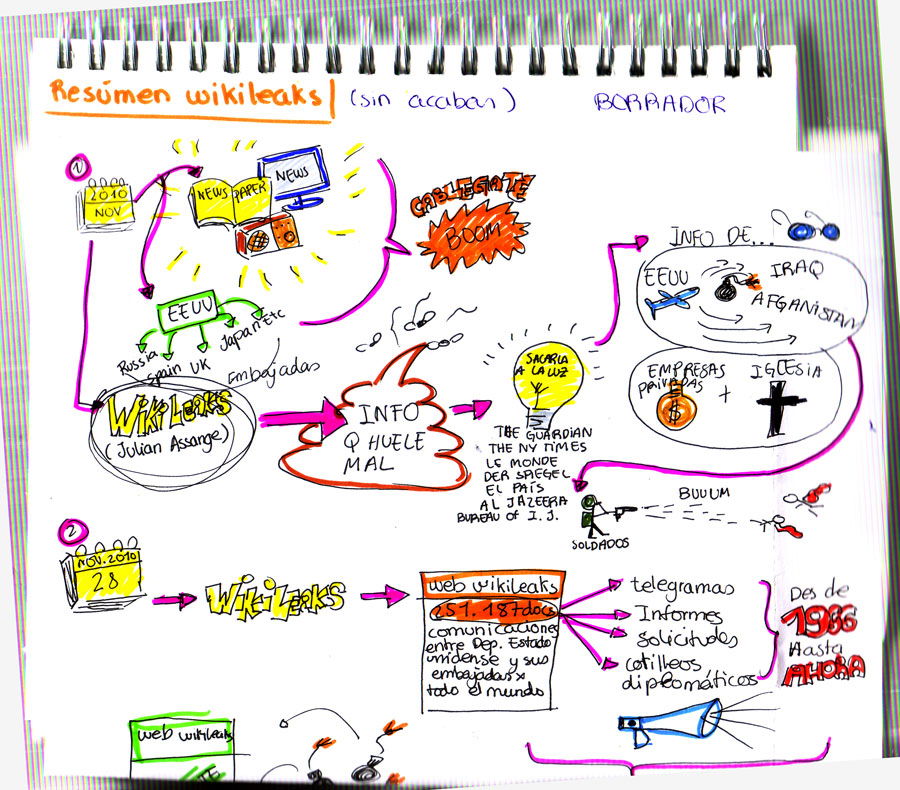 Resúmen wikileaks (sin acabar) BORRADOR
1
2010
NOV
NEWS PAPER
NEWS
CABLEGATE
BOOM
EEUU
Russia
Spain
UK
Japan
Etc
Embajadas
WIKILEAKS
(Julian Assange)
INFO
Q HUELE
MAL
SACARLA
A LA LUZ
THE GUARDIAN
THE NY TIMES
LE MONDE
DER SPIEGEL
EL PAÍS
AL JAZEERA
BUREAU OF I. J.
INFO DE...
EEUU
IRAQ
AFGANISTAN
EMPRESAS
PRIVADAS
$
+
IGLESIA
BUUUM
SOLDADOS
2
NOV. 2010
28
WIKILEAKS
web wikileaks
251.187docs
comunicaciones
entre Dep. Estado
unidense y sus
embajadas x
todo el mundo
telegramas
Informes
solicitudes
cotilleos
diplomáticos
Des de
1966
Hasta
AHORA
web wikileaks